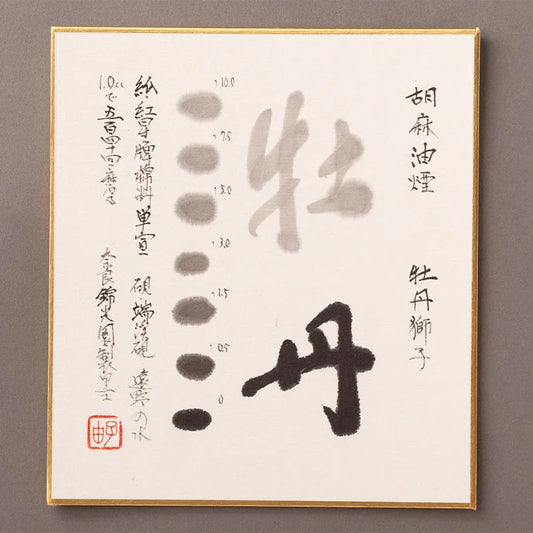 胡麻油煙 牡丹獅子
牡丹
10.0
7.5
5.0
3.0
1.5
0.5
0
紙 紅星牌棉料単宣 硯 端渓硯 遠野の水
1.0ccで五百四十回磨る
奈良 錦光園製墨